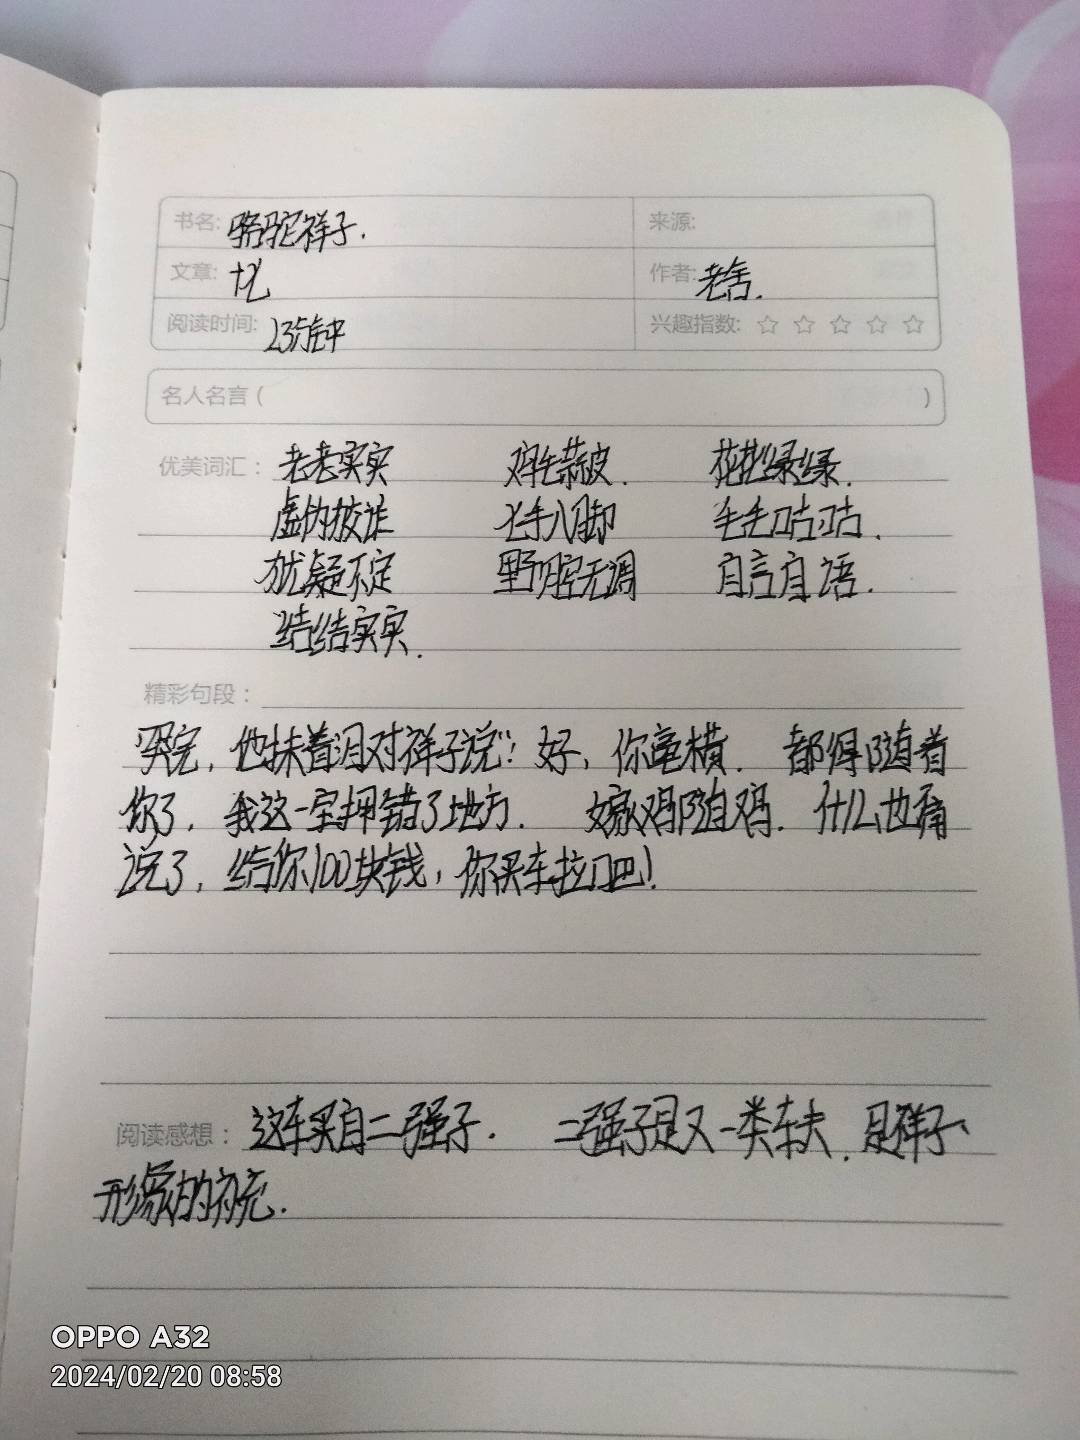 书名: 骆驼祥子. 来源:
文章: 十 作者: 老舍.
阅读时间: 23分钟 兴趣指数: ☆ ☆ ☆ ☆ ☆
名人名言 ( )
优美词汇: 老老实实 鸡毛蒜皮. 花花绿绿.
虚伪狡诈 七手八脚 毛毛咕咕.
犹疑不定 野腔无调 自言自语.
结结实实.
精彩句段:
哭完, 他抹着泪对祥子说": 好, 你豪横. 都得随着
你了, 我这一宝押错了地方. 嫁鸡随鸡. 什么也甭
说了, 给你100块钱, 你买车拉吧!
阅读感想: 这车买自二强子. 二强子是又一类车夫. 是祥子
形象的补充.
OPPO A32
2024/02/20 08:58